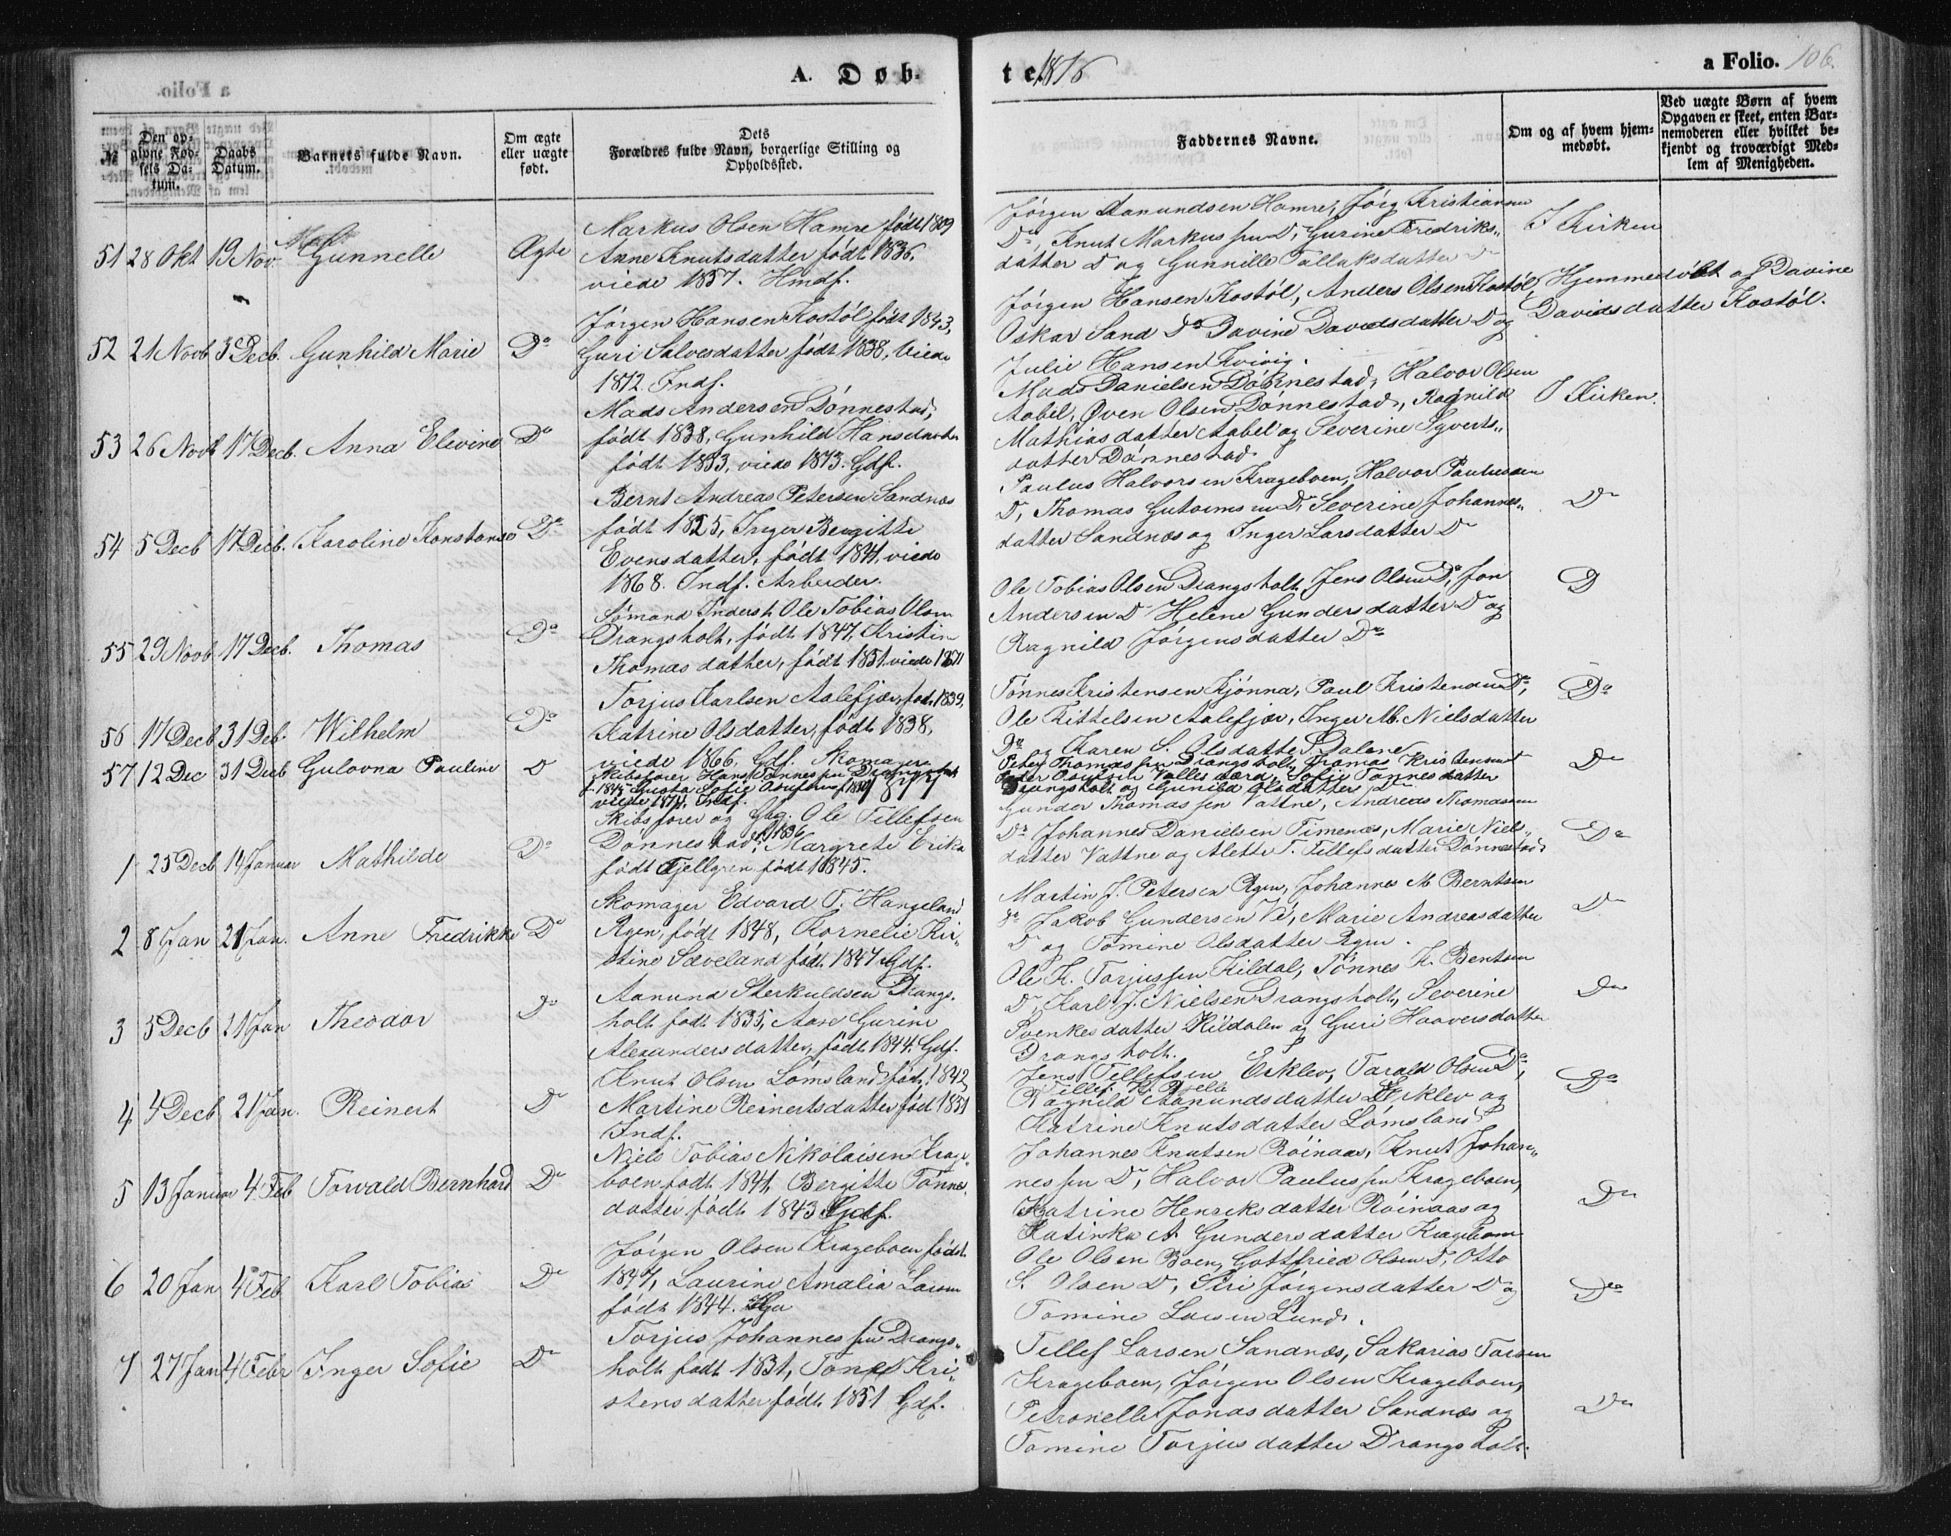 A. Døb-
te 1876
a Folio. 106.
№
Den opgivne Fødsels Datum.
Daabs Datum.
Barnets fulde Navn.
Om ægte eller uægte født.
Dets Forældres fulde Navn, borgerlige Stilling og Opholdssted.
Faddernes Navne.
Om og af hvem hjemmedøbt.
Ved uægte Børn af hvem Opgaven er skeet, enten Barnemoderen eller hvilket bekjendt og troværdigt Medlem af Menigheden.
51 28 Okt 19 Nov. Gunnelle Ægte
Markus Olsen Hamre født 1809
Anne Knutsdatter født 1836,
viede 1857. Hmdf.
Jørgen Aanundsen Hamre, Jørg Kristiansen
Do, Knut Markussen Do, Gurine Fredriks-
datter Do og Gunnille Tallaksdatter Do
I Kirken
52 21 Novb 3 Decb. Gunhild Marie Do
Jørgen Hansen Kostøl født 1843,
Guri Salvesdatter født 1838, Viede
1872 Indf.
Jørgen Hansen Kostøl, Anders Olsen Kostøl,
Oskar Sand Do Davine Davidsdatter Do og
Julie Hansen Kvivig.
Hjemmedøbt af Davine
Davidsdatter Kostøl.
53 26 Novb 17 Decb. Anna Elevine Do
Mads Andersen Dønnestad,
født 1838, Gunhild Hansdatter
født 1853, viede 1873. Gdf.
Mads Danielsen Dønnestad, Halvor Olsen
Aabel, Øven Olsen Dønnestad, Ragnild
Mathiasdatter Aabel og Severine Syverts-
datter Dønnestad.
I Kirken.
54 5 Decb 17 Decb. Karoline Konstanse Do
Bernt Andreas Petersen Sandnæs
født 1825, Inger Bergitte
Evensdatter, født 1841, viede
1868. Indf. Arbeider.
Paulus Halvorsen Krageboen, Halvor Paulussen
Do, Thomas Gutormsen Do Severine Johannes-
datter Sandnæs og Inger Larsdatter Do
Do
55 29 Novb 17 Decb. Thomas Do
Sømand Inderst Ole Tobias Olsen
Drangsholt, født 1847, Kristine
Thomasdatter, født 1851. viede 1871
Ole Tobias Olsen Drangsholt, Jens Olsen Do, Jon
Andersen Do Helene Gundersdatter Do og
Ragnild Jørgensdatter Do
Do
56 17 Decb 31 Deb. Wilhelm Do
Torjus Karlsen Aalefjær, født 1839,
Katrine Olsdatter, født 1838,
viede 1866. Gdf. Skomager
Tønnes Kristensen Kjønna, Paul Kristensen Do,
Ole Kittelsen Aalefjær, Inger M. Nielsdatter
Do og Karen S. Olsdatter Dalene
Do
57 12 Dec 31 Decb Gulovna Pauline Do
Skibsfører Hans Tønnessen Drangsholt
viede 1874. Indf.
Peder Thomassen Drangsholt, Thomas Kristensen
Drangsholt og Gunild Olsdatter Do
Do
1877
1 25 Decb 14 Januar Mathilde Do
Skibsfører og Gaa. Ole Tillefsen
Dønnestad f. 1836, Margrete Erika
født Fjellgren, født 1845.
Gunder Thomassen Vattne, Andreas Thomassen
Do Johannes Danielsen Timenæs, Marie Niels-
datter Vattne og Alette T. Tillefsdatter Dønnestad
Do
2 8 Jan 21 Jan. Anne Fredrikke Do
Skomager Edvard T. Hangeland
Rgen, født 1848, Kornelie Kir-
stine Sæveland født 1847 Gdf.
Martin J. Petersen Rgen, Johannes M Berntsen
Do Jakob Gundersen Ve, Marie Andreasdatter
Do og Tomine Olsdatter Rgen.
Do
3 5 Decb 21 Jan Theodor Do
Aanund Sterkuldsen Drangs-
holt født 1835, Aase Gurine
Alexandersdatter, født 1844. Gdf.
Ole K. Torjussen Kildal, Tønnes K. Bentsen
Do, Karl J. Nielsen Drangsholt, Severine
Svenkesdatter Kildalen og Guri Haaversdatter
Drangsholt.
Do
4 4 Decb 21 Jan. Reinert Do
Knut Olsen Lømsland født 1842,
Martine Reinertsdatter født 1851
Indf.
Jens Tellefsen Erklev, Tarald Olsen Do,
Ragnild Aanundsdatter Erklev og
Katrine Knutsdatter Lømsland
Do
5 13 Januar 4. Feb Torvald Bernhard Do
Niels Tobias Nikolaisen Krage-
boen født 1841, Bergitte Tønnes-
datter født 1843 Gdf.
Johannes Knutsen Røinaas, Knut Johan-
nessen Do, Halvor Paulussen Krageboen,
Katrine Henriksdatter Røinaas og
Katinka A Gundersdatter Krageboen
Do
6 20 Jan 4 Feb Karl Tobias Do
Jørgen Olsen Krageboen født
1847, Laurine Amalia Larsen
født 1844.
Ole Olsen Boen, Gottfried Olsen Do, Otto
S. Olsen Do, Siri Jørgensdatter Do og
Tomine Larsen Lund.
Do
7 27 Jan 4 Febr Inger Sofie Do
Torjus Johannessen Drangs-
holt født 1831, Tone Kri-
stensdatter født 1851 Gdf.
Tellef Larsen Sandnæs, Sakarias Larsen
Krageboen, Jørgen Olsen Krageboen,
Petronelle Jonasdatter Sandnæs og
Tomine Torjusdatter Drangsholt.
Do